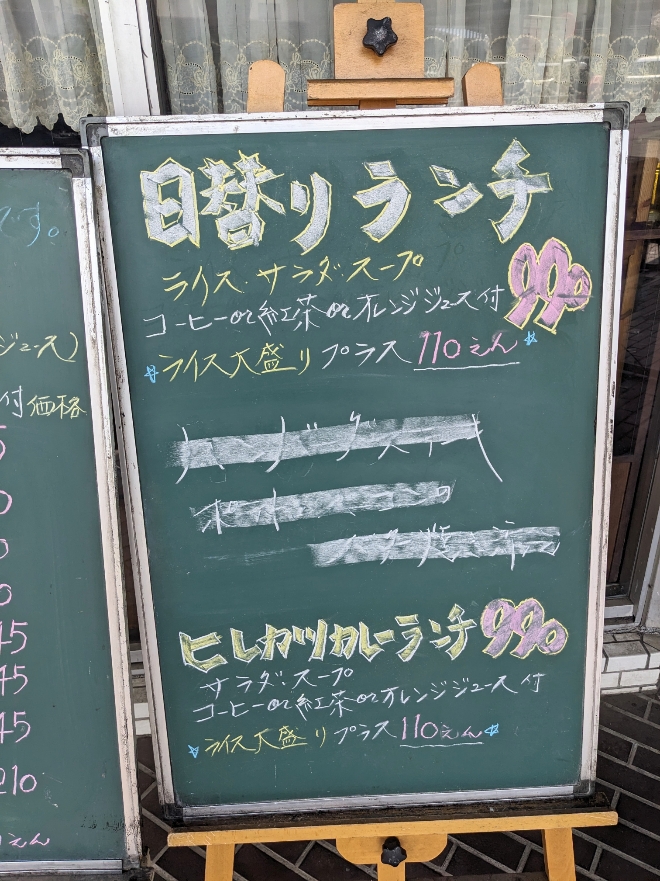 日替りランチ
990
ライス・サラダ・スープ
コーヒーor紅茶orオレンジジュース付
ライス大盛り プラス 110えん
ヒレカツカレーランチ 990
サラダ・スープ
コーヒーor紅茶orオレンジジュース付
ライス大盛り プラス 110えん
です。
ジュース)
付価格
5
0
0
0
45
45
45
210
えん